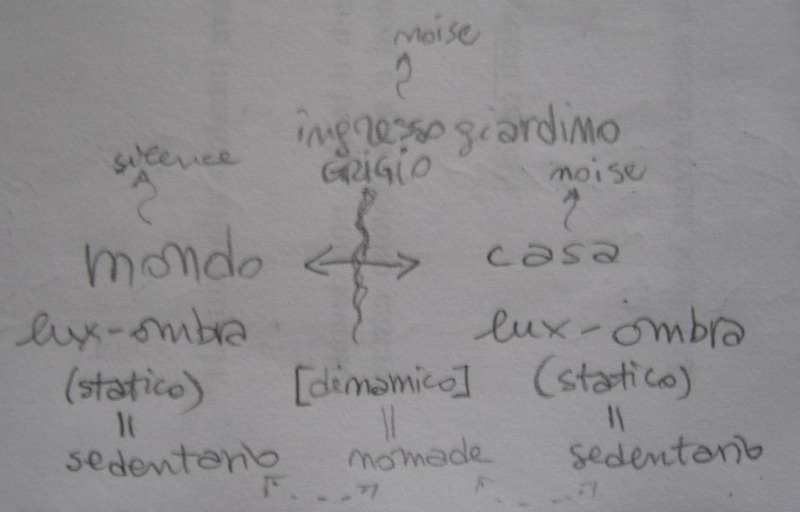 noise
ingresso giardino
silence GRIGIO noise
mondo casa
lux-ombra lux-ombra
(statico) [dinamico] (statico)
sedentario nomade sedentario